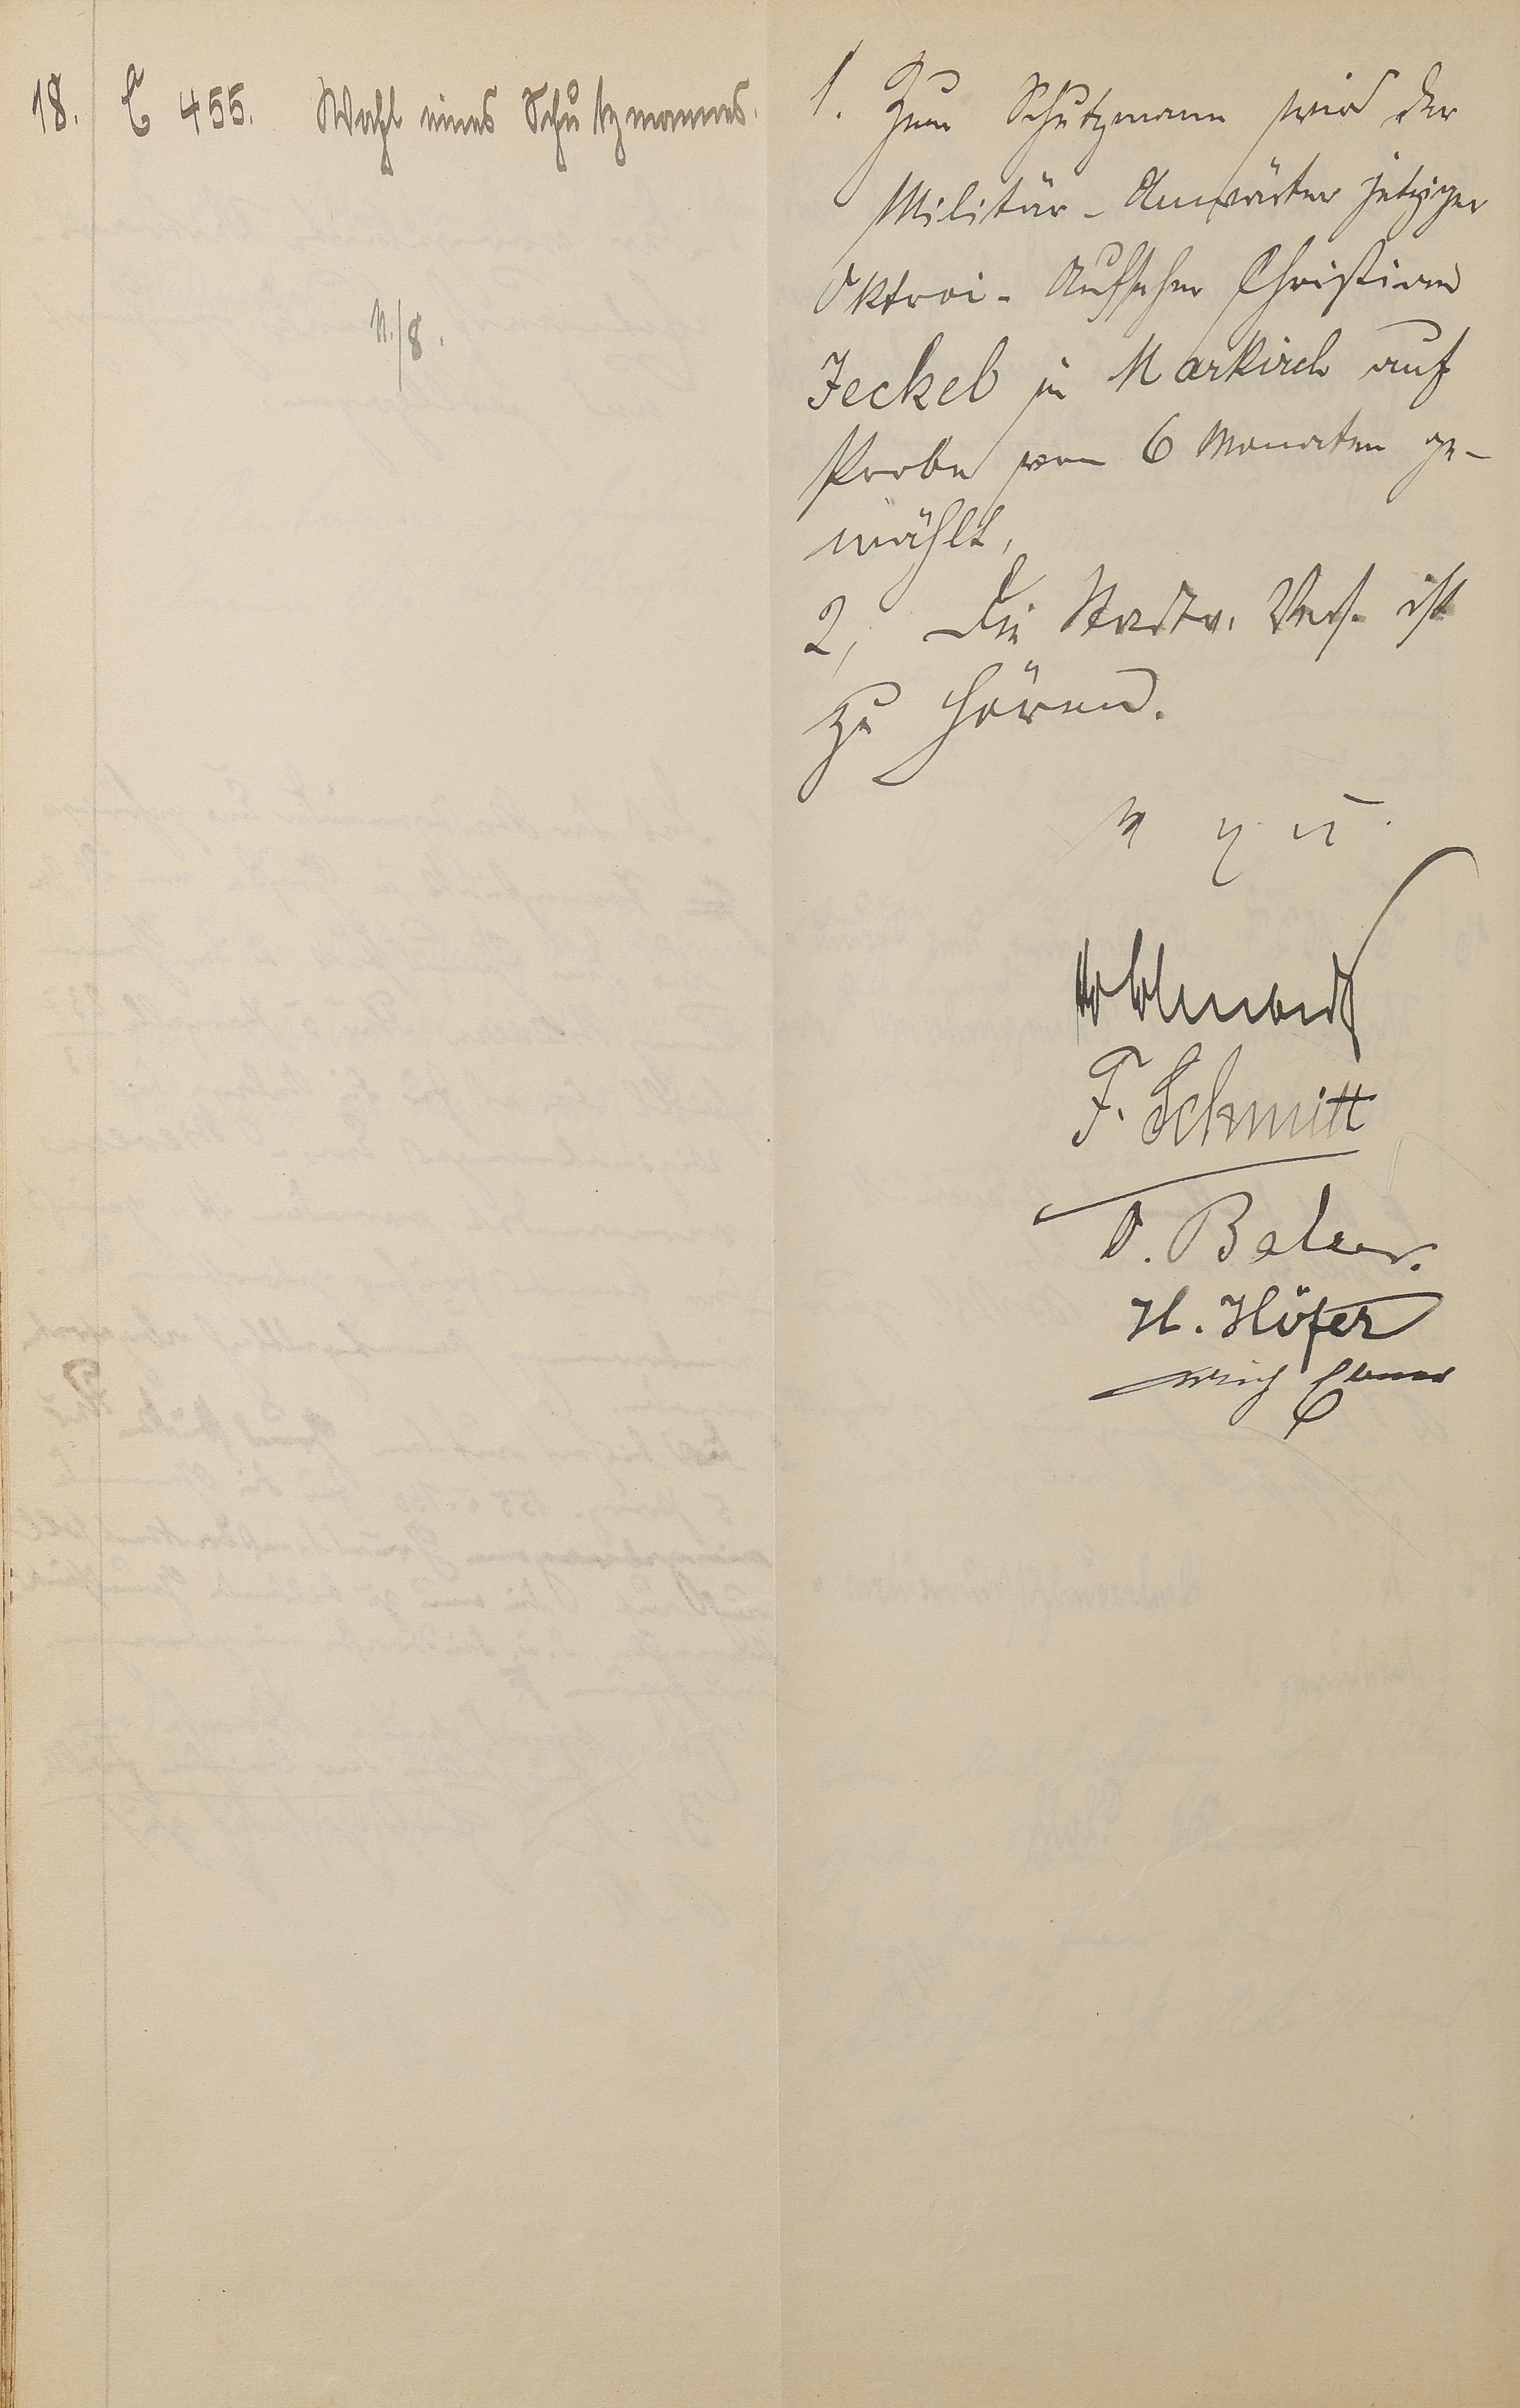 18. C 455. Wahl eines Schutzmannes.
N./8.
1. Zum Schutzmann wird der
Militär-Anwärter jetziger
Oktroi-Aufseher Christian
Jeckel in Markirch auf
Probe von 6 Monaten ge-
wählt,
2, Die Stadtv. Vers. ist
zu hören.
v g u.
F. Schmitt
O. Balser.
H. Höfer